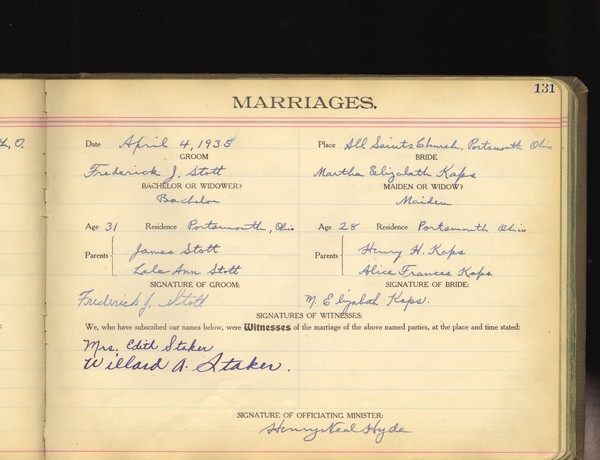 131
MARRIAGES.
h, O.
Date April 4, 1935 Place All Saints Church, Portsmouth Ohio
GROOM BRIDE
Frederick J. Stott Martha Elizabeth Kaps
BACHELOR OR WIDOWER? MAIDEN OR WIDOW?
Bachelor Maiden
Age 31 Residence Portsmouth, Ohio Age 28 Residence Portsmouth Ohio
Parents James Stott Parents Henry H. Kaps
Lala Ann Stott Alice Frances Kaps
SIGNATURE OF GROOM: SIGNATURE OF BRIDE:
Frederick J. Stott M. Elizabeth Kaps.
SIGNATURES OF WITNESSES:
We, who have subscribed our names below, were Witnesses of the marriage of the above named parties, at the place and time stated:
Mrs. Edith Staker
Willard A. Staker.
SIGNATURE OF OFFICIATING MINISTER:
Henry Neal Hyde